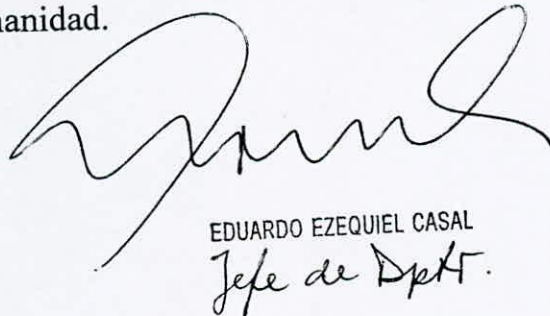 anidad.
EDUARDO EZEQUIEL CASAL
Jefe de Dpto.